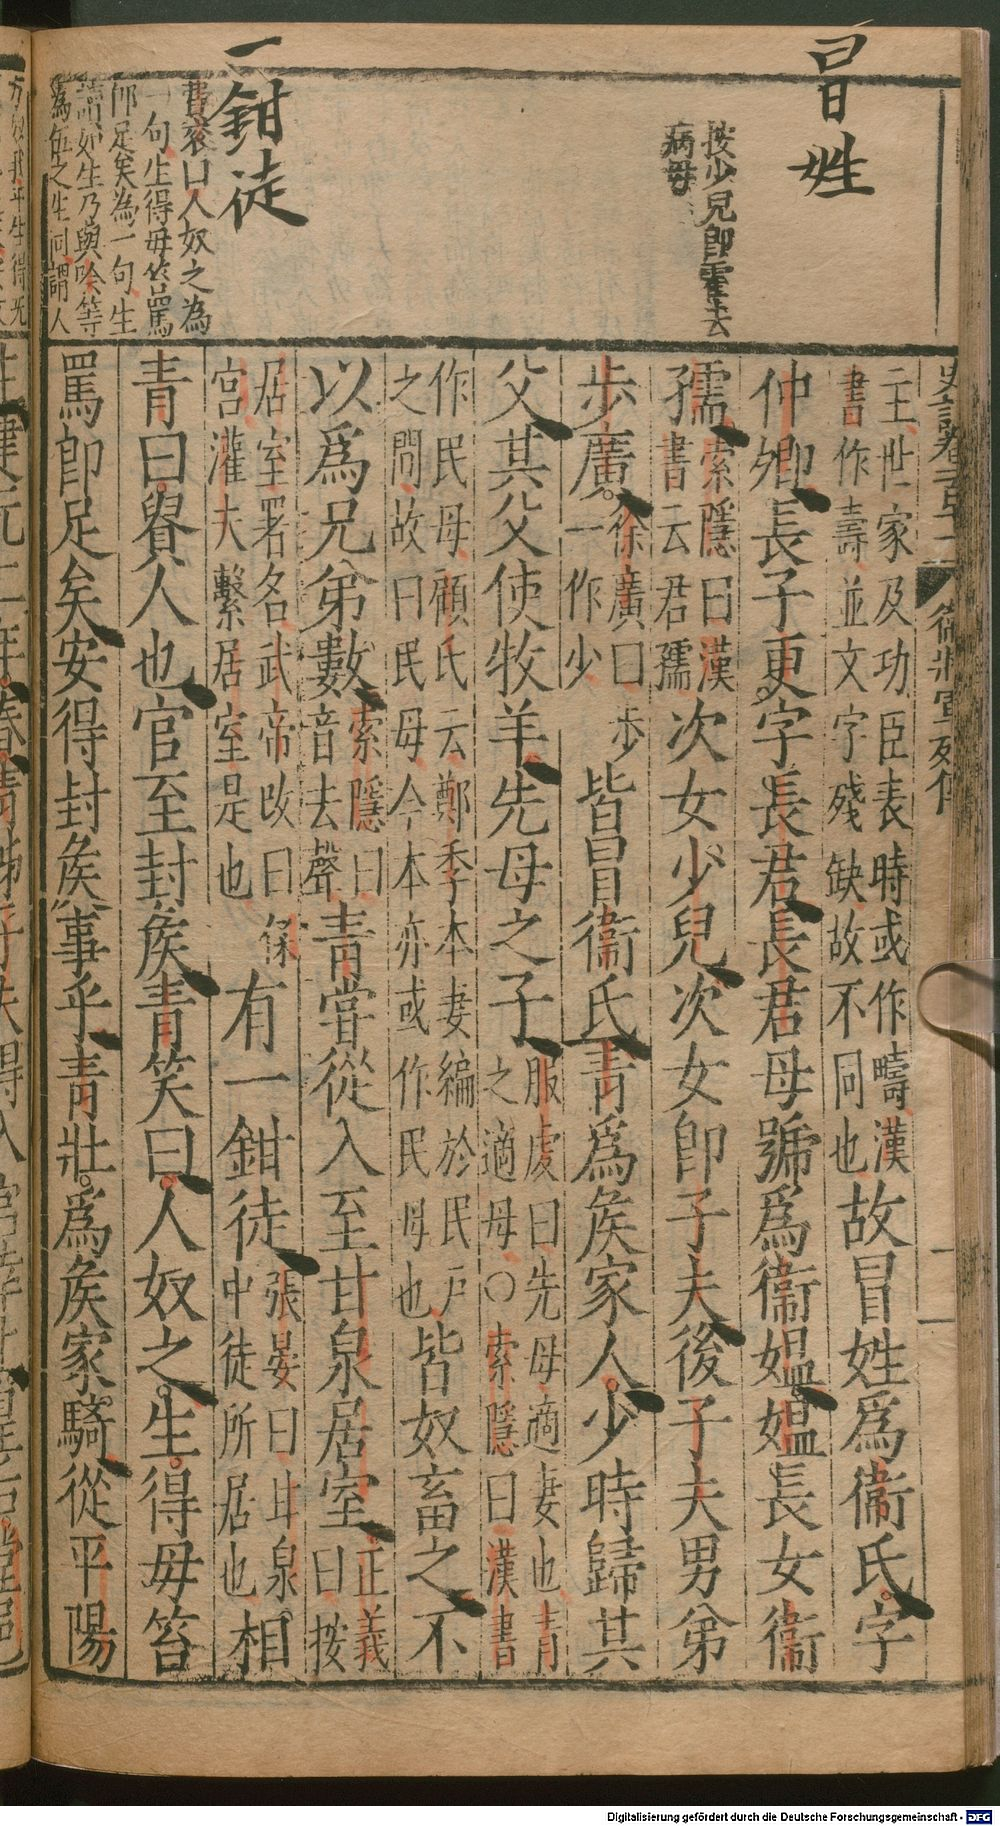 冒姓
按少兒卽霍去
病母
一鉗徒
費袞曰人奴之為
一句生得毋笞罵
卽足矣為一句生
讀如生乃與噲等
爲伍之生同謂人
主世家及功臣表時或作疇漢
書作壽並文字殘缺故不同也
故冒姓爲衞氏字
仲卿長子更字長君長君母號爲衞媼媼長女衞
孺
索隱曰漢
書云君孺
次女少兒次女卽子夫後子夫男弟
步廣
徐廣曰步
一作少
皆冒衞氏青爲矦家人少時歸其
父其父使牧羊先母之子
服虔曰先母適妻也青
之適母○索隱曰漢書
作民母顧氏云鄭季本妻編於民戶
之間故曰民母今本亦或作民母也
皆奴畜之不
以爲兄弟數
索隱曰
音去聲
青嘗從入至甘泉居室
正義
曰按
居室署名武帝改曰保
宮灌夫繫居室是也
有一鉗徒
張晏曰甘泉
中徒所居也
相
青曰貴人也官至封矦青笑曰人奴之生得毋笞
罵卽足矣安得封矦事乎青壯爲矦家騎從平陽
Digitalisierung gefördert durch die Deutsche Forschungsgemeinschaft - DFG